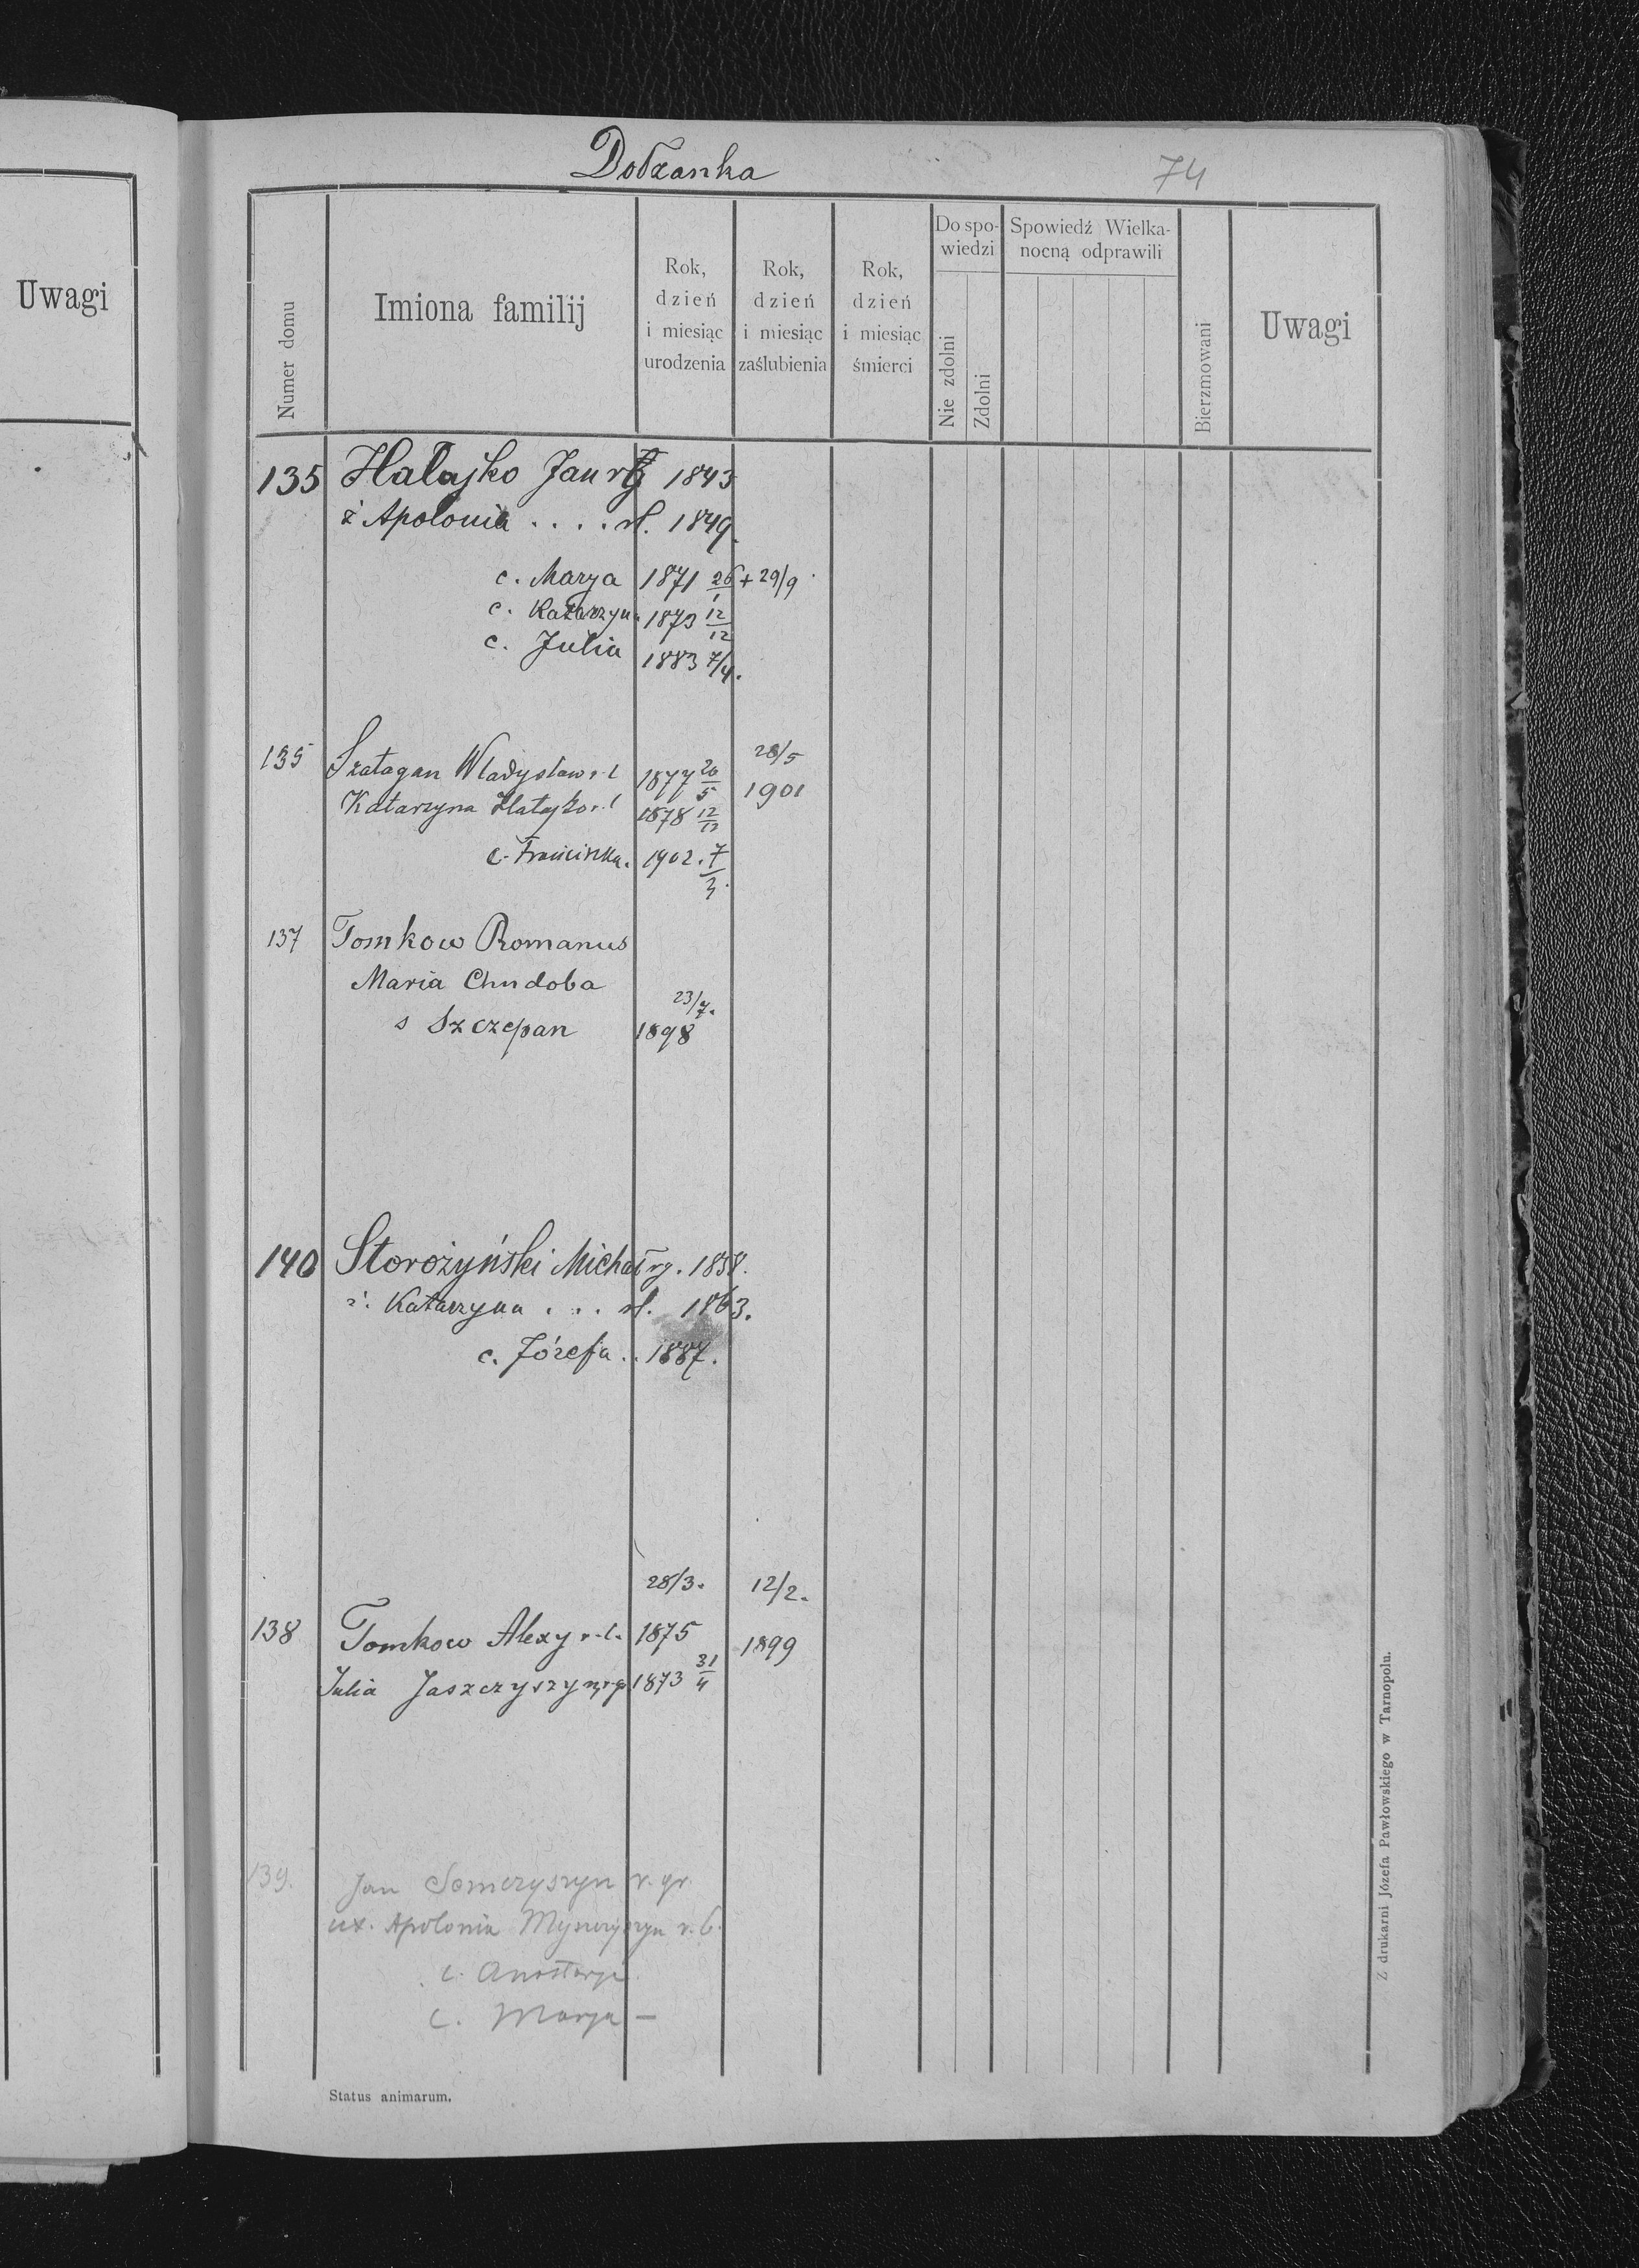 Uwagi
Dołżanka
74
Numer domu
Imiona familij
Rok, dzień i miesiąc urodzenia
Rok, dzień i miesiąc zaślubienia
Rok, dzień i miesiąc śmierci
Do spowiedzi
Nie zdolni
Zdolni
Spowiedź Wielkanocną odprawili
Bierzmowani
Uwagi
135 Hałajko Jan rg 1843
ż Apolonia . . . . rł. 1849.
c. Marya 1871 26/1 + 29/9
c. Katarzyna 1873 12/12
c. Julia 1883 7/4.
28/5
135 Szatagan Władysław r.l 1877 20/5 1901
Katarzyna Hałajko r.l 1878 12/12
c. Franciszka. 1902. 7/3.
137 Tomkow Romanus
Maria Chudoba
23/7.
s Szczepan 1898
140 Storożyński Michał rg. 1858.
ż. Katarzyna . . . rł. 1863.
c. Józefa .. 1887.
28/3. 12/2.
138 Tomkow Alexy r.l. 1875 1899
Julia Jaszczyszyn rg 1873 31/4
139. Jan Semczyszyn r. gr.
ux. Apolonia r. ł.
c. Anastazya
c. Marya —
Status animarum.
Z drukarni Józefa Pawłowskiego w Tarnopolu.